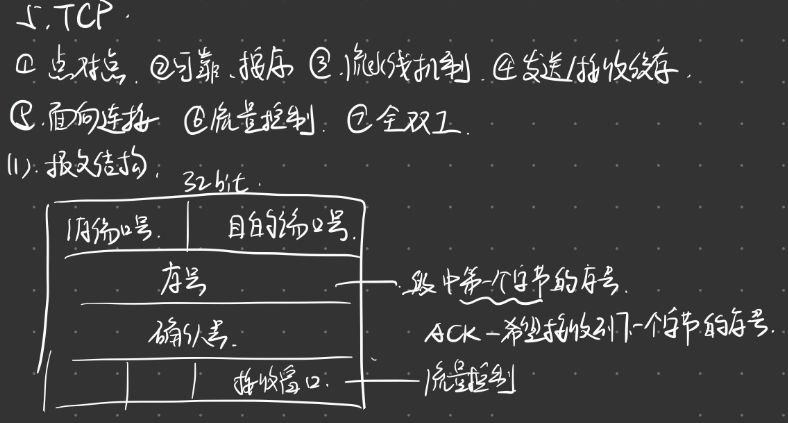 5. TCP.
① 点对点. ②可靠、按序 ③.流水线机制. ④发送/接收缓存.
⑤.面向连接 ⑥流量控制. ⑦全双工.
(1). 报文结构:
32bit.
源端口号. 目的端口号.
序号 — 段中第一个字节的序号.
确认号. ACK - 希望接收到下一个字节的序号.
接收窗口. — 流量控制